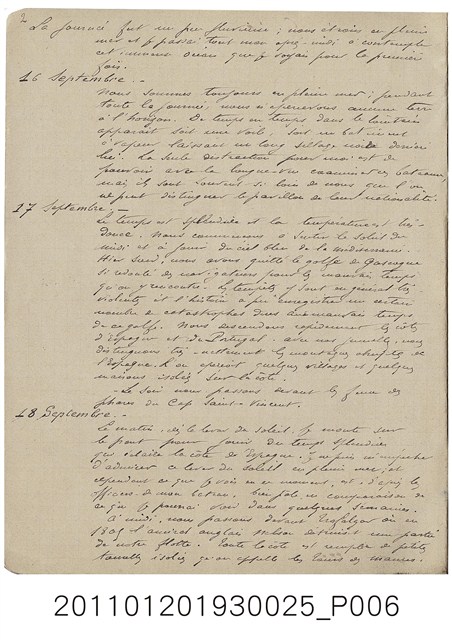 2
La journée fut un peu pluvieuse; nous étions en pleine
mer et je passai tout mon après-midi à contempler
cet immense océan que je voyais pour la première
fois.
16 Septembre.-
Nous sommes toujours en pleine mer; pendant
toute la journée, nous n'apercevons aucune terre
à l'horizon. De temps en temps dans le lointain
apparait soit une voile, soit un bâtiment
à vapeur laissant un long sillage noir derrière
lui. La seule distraction pour moi est de
pouvoir avec la longue-vue examiner ces bateaux,
mais ils sont souvent si loin de nous que l'on
ne peut distinguer le pavillon de leur nationalité.
17 Septembre.-
Le temps est splendide et la température est très
douce. Nous commençons à sentir le soleil du
midi et à jouir du ciel bleu de la méditerranée.
Hier soir, nous avons quitté le golfe de Gascogne
si redouté des navigateurs pour les mauvais temps
qu'on y rencontre. Les tempêtes y sont en général très
violentes et l'histoire a pu enregistrer un certain
nombre de catastrophes dues aux mauvais temps
de ce golfe. Nous descendons rapidement les côtes
d'Espagne et de Portugal. avec nos jumelles, nous
distinguons très nettement les montagnes de
l'Espagne, l'on aperçoit quelques villages et quelques
maisons isolées sur la côte.
Le soir nous passons devant les feux des
phares du Cap Saint-Vincent.
18 Septembre.-
Le matin, dès le lever du soleil, je monte sur
le pont pour jouir du temps splendide
qui éclaire la côte d'Espagne. Je ne puis m'empêcher
d'admirer ce lever du soleil en pleine mer, et
cependant ce que je vois en ce moment, est, d'après les
officiers de mon bateau, bien pâle en comparaison de
ce que je pourrai voir dans quelques semaines.
A midi, nous passons devant Trafalgar où en
1805 l'amiral anglais Nelson détruisit une partie
de notre flotte. Toute la côte est remplie de petites
tourelles isolées qu'on appelle les tours des maures.
201101201930025_P006